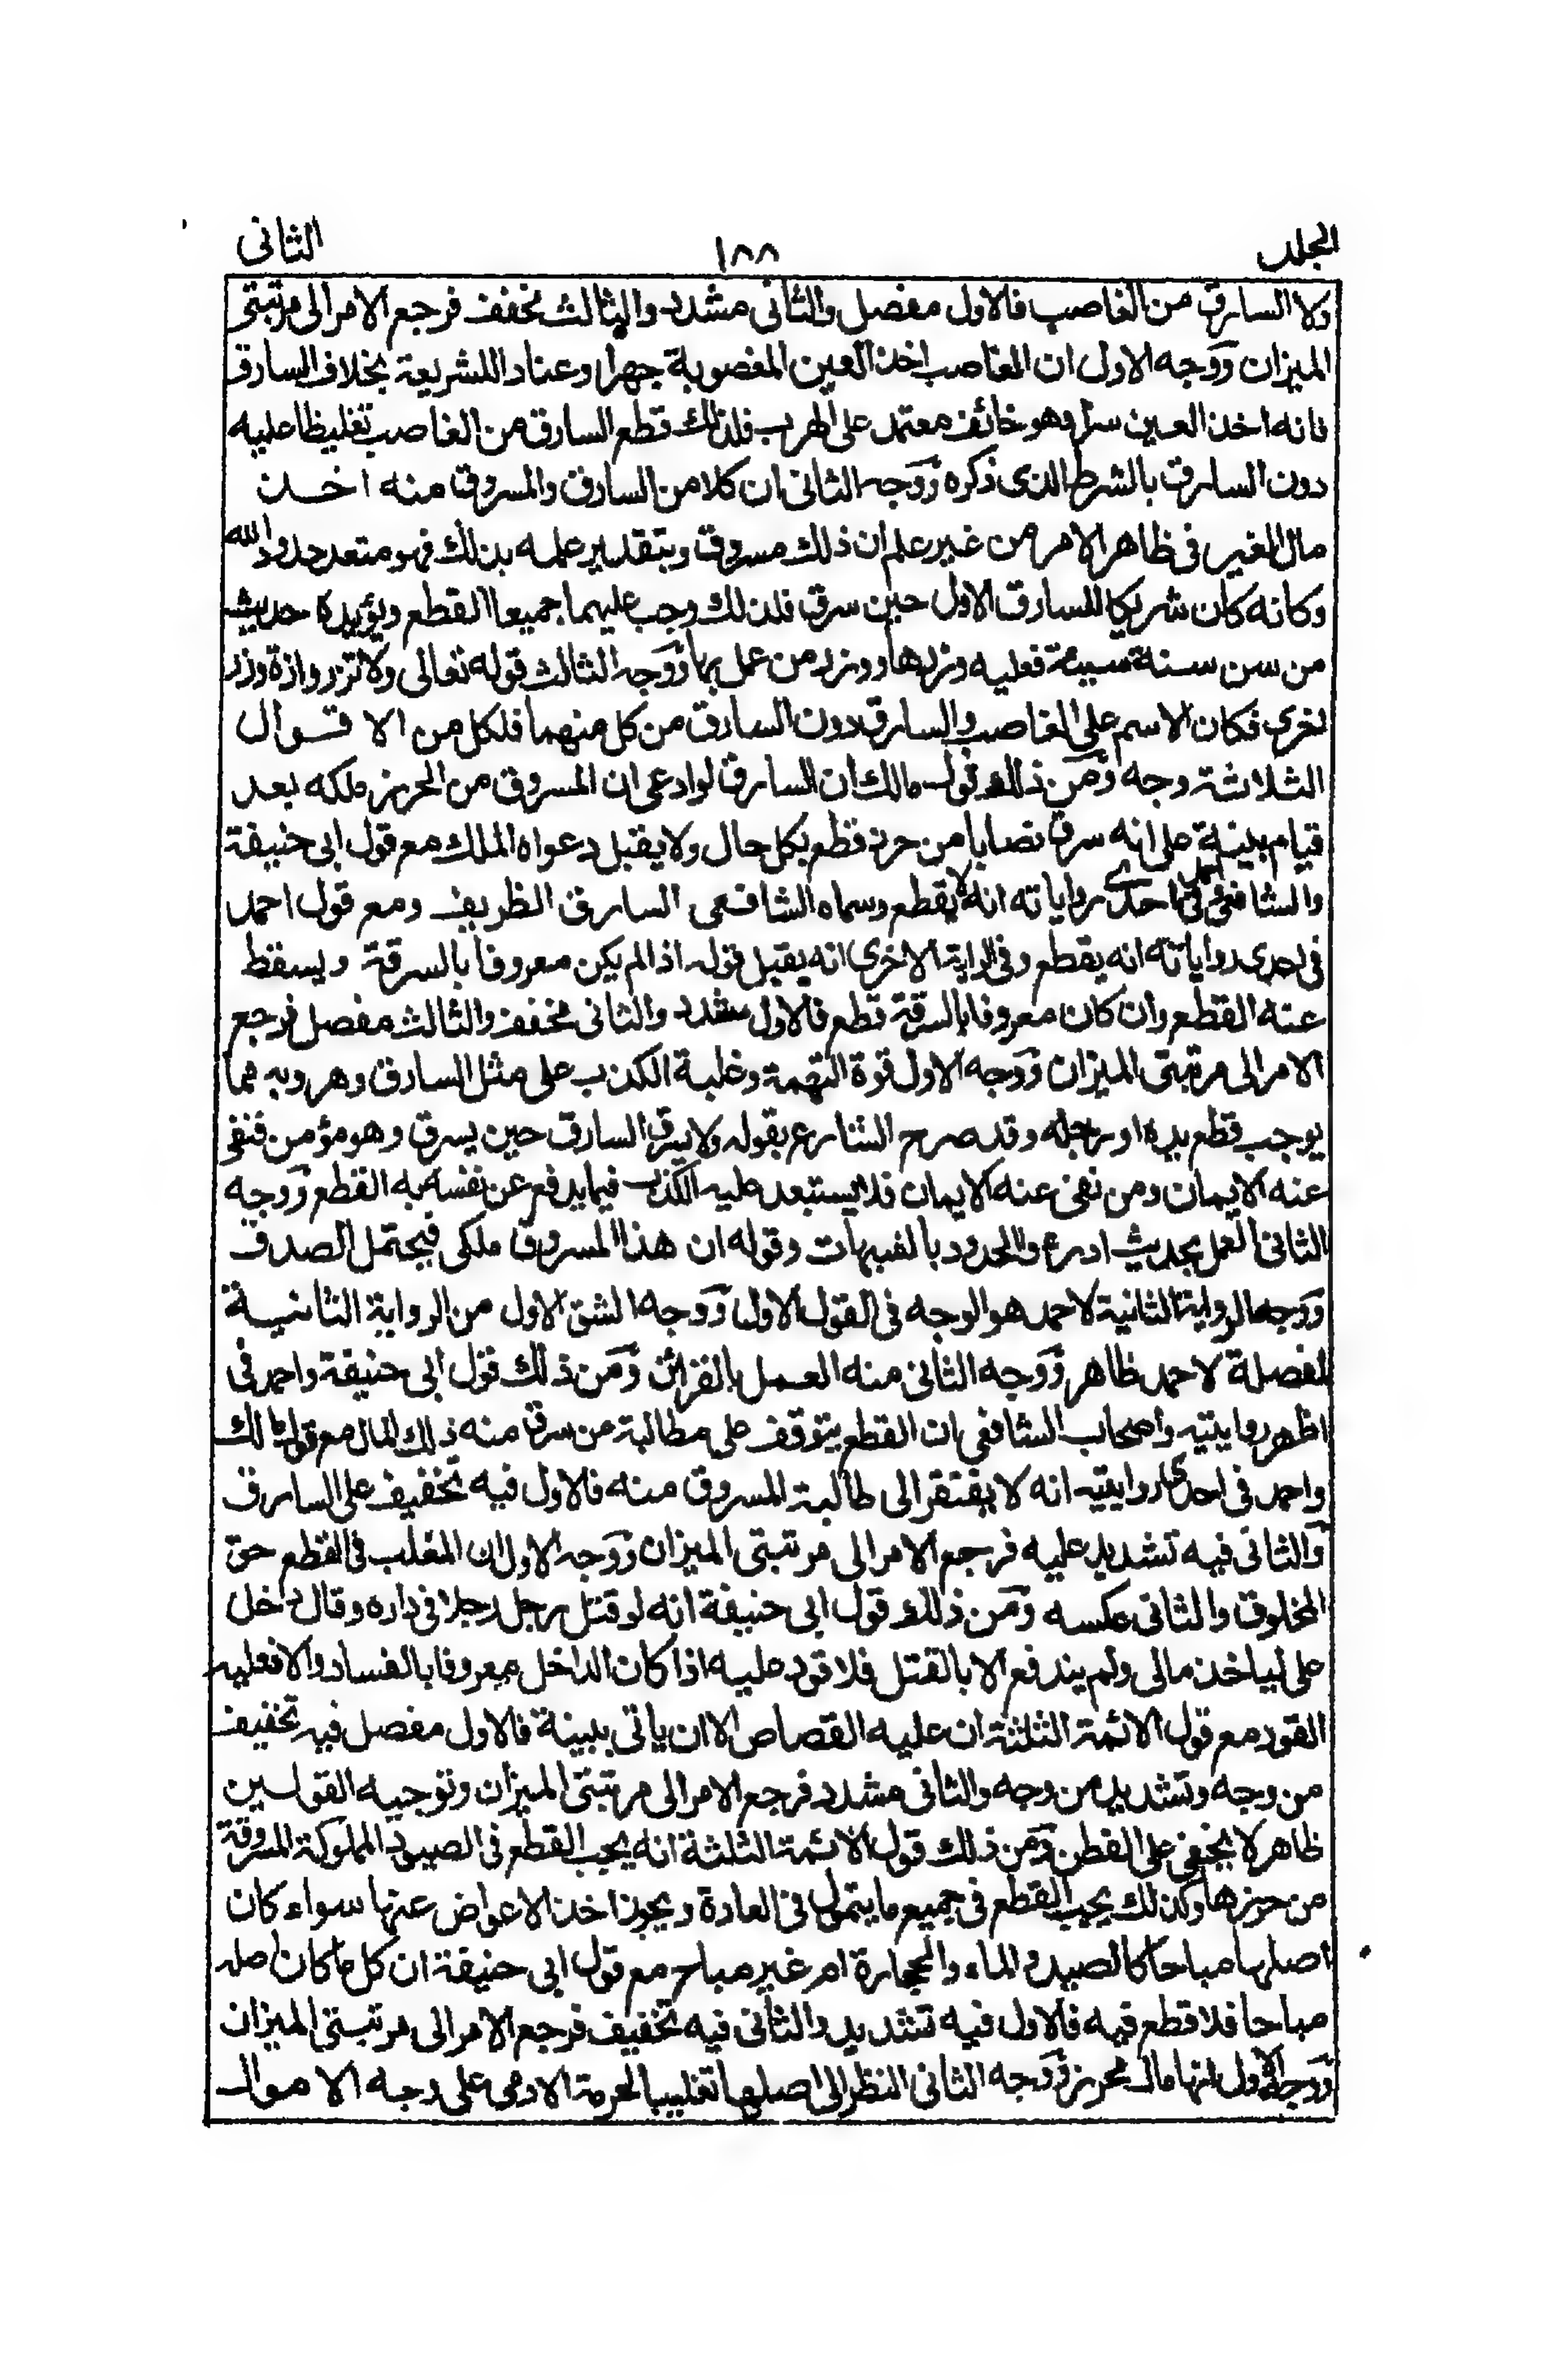 المجلد ١٨٨ الثانى
ولا السارق من الغاصب فالاول مفصل والثانى مشدد والثالث مخفف فرجع الامر الى مرتبتى
الميزان ووجه الاول ان الغاصب اخذ العين المغصوبة جهرا وعنادا للشريعة بخلاف السارق
فانه اخذ العين سرا وهو خائف معتمد على الهرب فلذلك قطع السارق من الغاصب تغليظا عليه
دون السارق بالشرط الذى ذكره ووجه الثانى ان كلا من السارق والمسروق منه اخذ
مال الغير فى ظاهر الامر من غير علم ان ذلك مسروق وبتقدير علمه بذلك فهو متعد حدود الله
وكانه كان شريكا للسارق الاول حين سرق فلذلك وجب عليهما جميعا القطع ويؤيده حديث
من سن سنة سيئة فعليه وزرها ووزر من عمل بها ووجه الثالث قوله تعالى ولا تزر وازرة وزر
اخرى فكان الاسم على الغاصب والسارق دون السارق من كل منهما فلكل من الاقوال
الثلاثة وجه ومن ذلك قول مالك ان السارق لو ادعى ان المسروق من الحرز ملكه بعد
قيام بينة على انه سرق نصابا من حرز قطع بكل حال ولا يقبل دعواه الملك مع قول ابى حنيفة
والشافعى واحمد فى احدى رواياته انه لا يقطع وسماه الشافعى السارق الظريف ومع قول احمد
فى احدى رواياته انه يقطع وفى الراية الاخرى انه يقبل قوله اذا لم يكن معروفا بالسرقة ويسقط
عنه القطع وان كان معروفا بالسرقة قطع فالاول مشدد والثانى مخفف والثالث مفصل فرجع
الامر الى مرتبتى الميزان ووجه الاول قوة التهمة وغلبة الكذب على مثل السارق وهروبه مما
يوجب قطع يده او رجله وقد صرح الشارع بقوله ولا يسرق السارق حين يسرق وهو مؤمن فنفى
عنه الايمان ومن نفى عنه الايمان فلا يستبعد عليه الكذب فيما يدفع عن نفسه به القطع ووجه
الثانى العمل بحديث ادرءوا الحدود بالشبهات وقوله ان هذا المسروق ملكى فيحتمل الصدق
ووجه الرواية الثانية لاحمد هو الوجه فى القول الاول ووجه الشق الاول من الرواية الثانية
المفصلة لاحمد ظاهر ووجه الثانى منه العمل بالقرائن ومن ذلك قول ابى حنيفة واحمد فى
اظهر روايتيه واصحاب الشافعى ان القطع يتوقف على مطالبة من سرق منه ذلك المال مع قول مالك
واحمد فى احدى روايتيه انه لا يفتقر الى طالبة المسروق منه فالاول فيه تخفيف على السارق
والثانى فيه تشديد عليه فرجع الامر الى مرتبتى الميزان ووجه الاول ان المغلب فى القطع حق
المخلوق والثانى عكسه ومن ذلك قول ابى حنيفة انه لو قتل رجل رجلا فى داره وقال دخل
على لياخذ مالى ولم يندفع الا بالقتل فلا قود عليه اذا كان الداخل معروفا بالفساد والا فعليه
القود مع قول الائمة الثلثة ان عليه القصاص الا ان ياتى ببينة فالاول مفصل فيه تخفيف
من وجه وتشديد من وجه والثانى مشدد فرجع الامر الى مرتبتى الميزان وتوجيه القولين
ظاهر لا يخفى على الفطن ومن ذلك قول الائمة الثلثة انه يجب القطع فى الصيود المملوكة المسروقة
من حرزها وكذلك يجب القطع فى جميع ما يتمول فى العادة ويجوز اخذ الاعواض عنها سواء كان
اصلها مباحا كالصيد والماء والحجارة ام غير مباح مع قول ابى حنيفة ان كل ما كان اصله
مباحا فلا قطع فيه فالاول فيه تشديد والثانى فيه تخفيف فرجع الامر الى مرتبتى الميزان
ووجه الاول انها مال محرز ووجه الثانى النظر الى اصلها تغليبا لحرمة الادمى على وجه الاموال